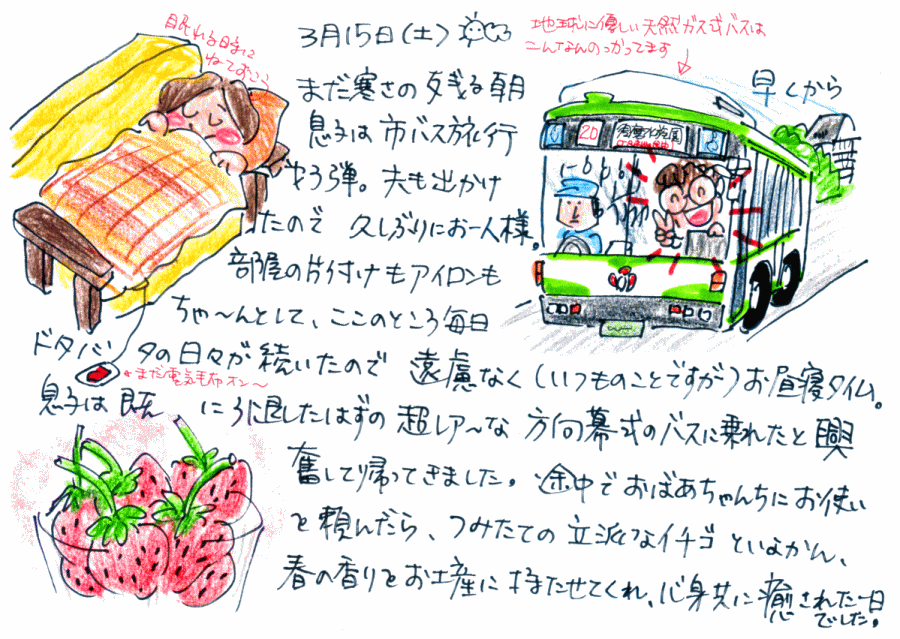 眠れる時に
ねておこう
3月15日(土)
地球に優しい天然ガス式バスは
こんなんのっかってます
まだ寒さの残る朝 早くから
息子は市バス旅行
第3弾。夫も出かけ
たので 久しぶりにお一人様。
部屋の片付けもアイロンも
ちゃ〜んとして、ここのところ毎日
ドタバタの日々が続いたので 遠慮なく(いつものことですが)お昼寝タイム。
まだ電気毛布オン〜
息子は既に引退したはずの超レア〜な 方向幕式のバスに乗れたと興
奮して帰ってきました。途中でおばあちゃんちにお使い
を頼んだら、つみたての立派なイチゴといよかん、
春の香りをお土産に持たせてくれ、心身共に癒された一日
でした。
20